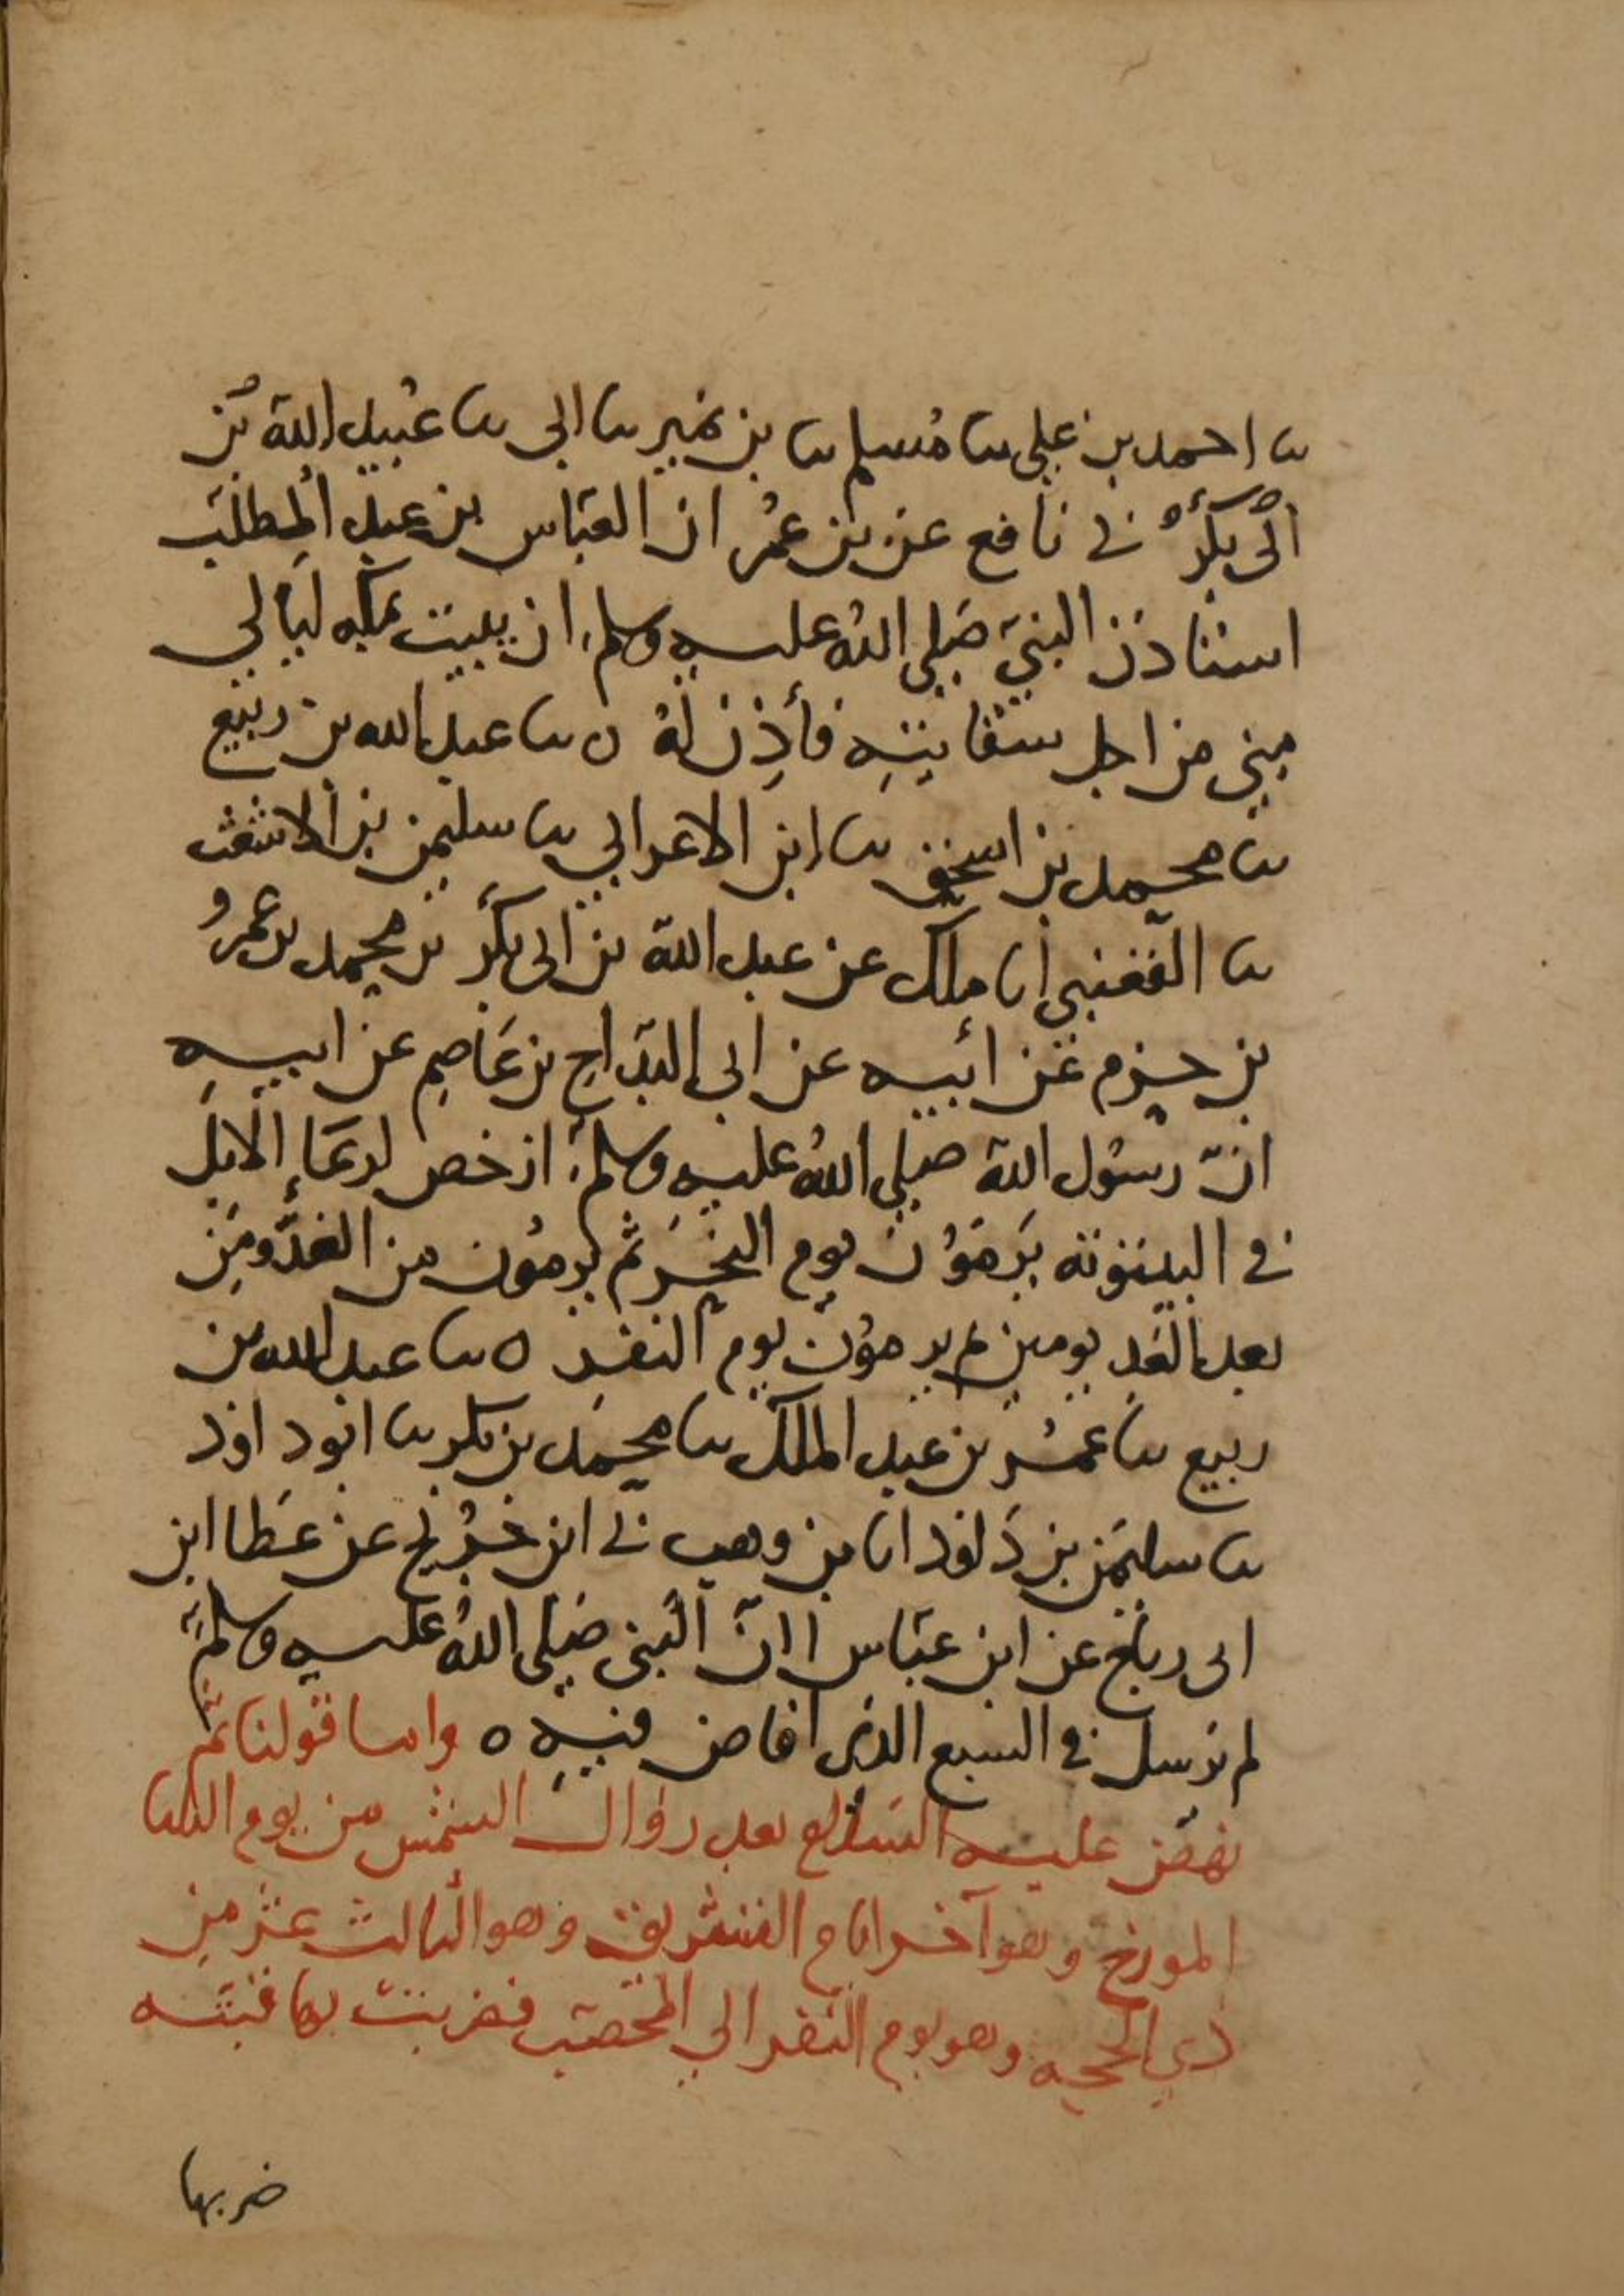 ثنا احمد بن علي ثنا مسلم ثنا بن نمير ثنا ابي ثنا عبيد الله بن
ابي بكر ني نافع عن بن عمر ان العباس بن عبد المطلب
استاذن النبي صلى الله عليه وسلم ان يبيت بمكه ليالي
منى من اجل سقايته فأذن له ه ثنا عبد الله بن ربيع
ثنا محمد بن اسحق ثنا ابن الاعرابي ثنا سليمن بن الاشعث
ثنا القعنبي انا ملك عن عبد الله بن ابى بكر بن محمد بن عمرو
بن حزم عن ابيه عن ابى البداح بن عاصم عن ابيه
ان رسول الله صلى الله عليه وسلم ارخص لرعاء الابل
في البيتوته يرمون يوم النحر ثم يرمون من الغد ومن
بعد الغد يومين ثم يرمون يوم النفر ه ثنا عبد الله بن
ربيع ثنا عمر بن عبد الملك ثنا محمد بن بكر ثنا ابو داود
ثنا سليمن بن داود انا بن وهب ني ابن جريج عن عطا ابن
ابى رباح عن ابن عباس ان النبى صلى الله عليه وسلم
لم يرمل في السبع الذى افاض فيه ه واما قولنا ثم
نهض عليه السلام بعد زوال الشمس من يوم الثلثا
المورخ وهو آخر ايام التشريق وهو الثالث عشر من
ذي الحجه وهو يوم النفر الى المحصب فضربت بها قبته
ضربها